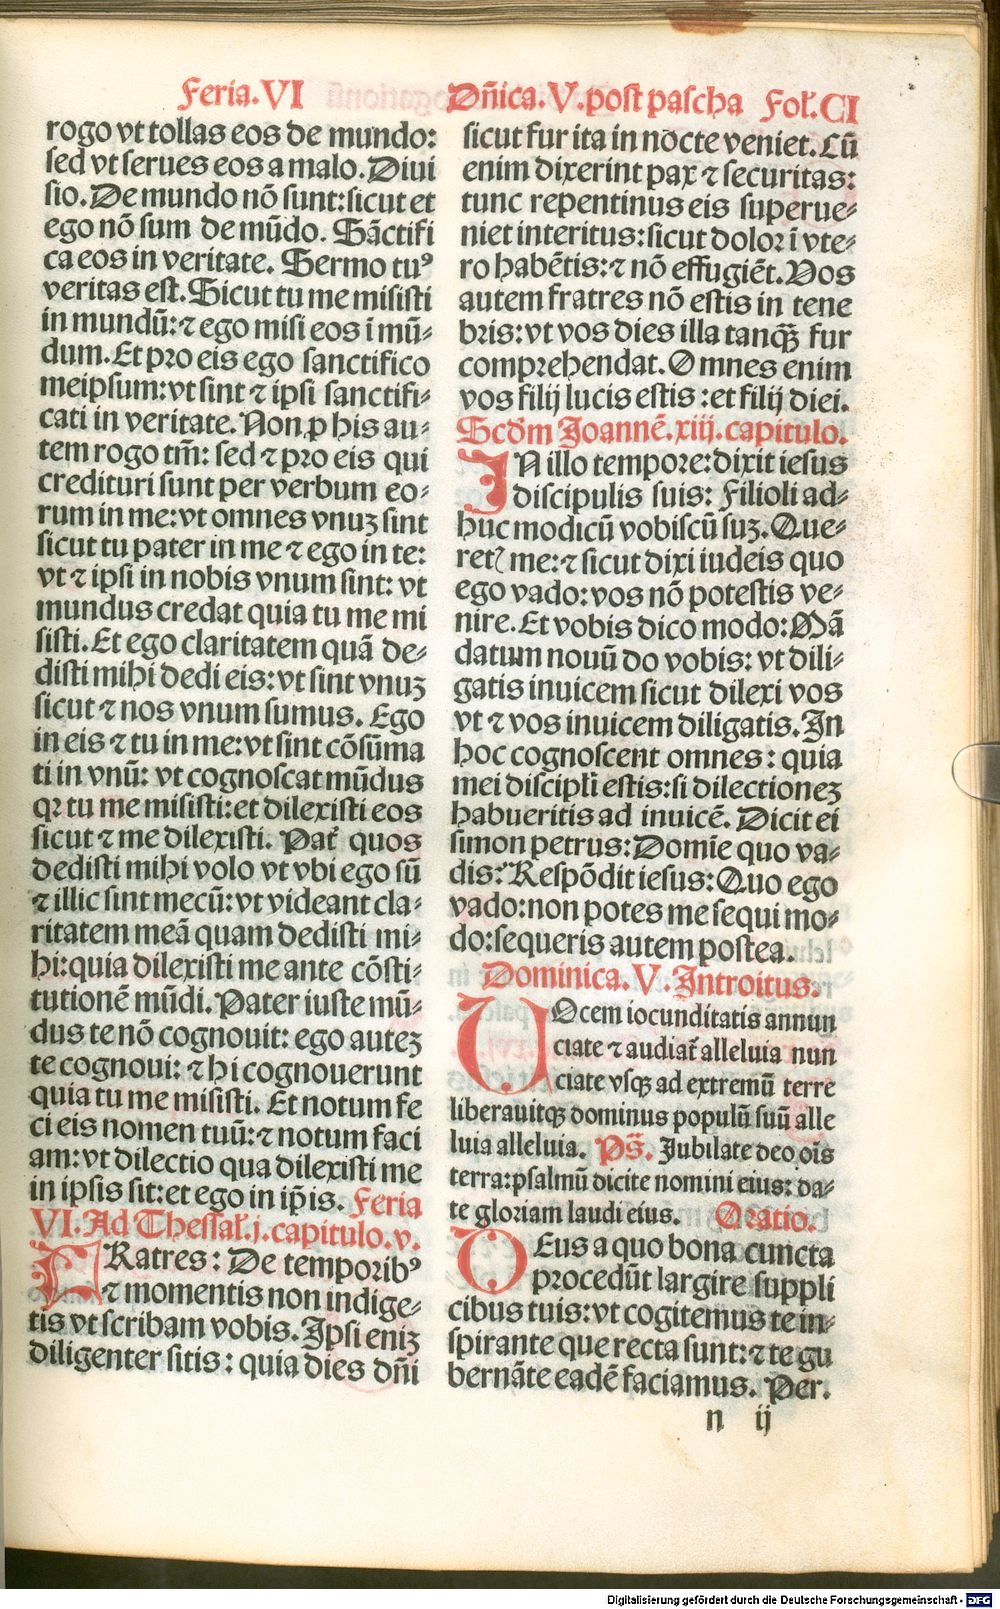 Feria.VI
Dñica.V.post pascha Fol.CI
rogo vt tollas eos de mundo:
sed vt serues eos a malo. Diui
sio. De mundo nõ sunt: sicut et
ego nõ sum de mũdo. Sãctifi
ca eos in veritate. Sermo tuꝰ
veritas est. Sicut tu me misisti
in mundũ: ⁊ ego misi eos ĩ mũ⸗
dum. Et pro eis ego sanctifico
meipsum: vt sint ⁊ ipsi sanctifi⸗
cati in veritate. Non ꝓ his au⸗
tem rogo tm̃: sed ⁊ pro eis qui
credituri sunt per verbum eo⸗
rum in me: vt omnes vnuꝫ sint
sicut tu pater in me ⁊ ego in te:
vt ⁊ ipsi in nobis vnum sint: vt
mundus credat quia tu me mi
sisti. Et ego claritatem quã de⸗
disti mihi dedi eis: vt sint vnuꝫ
sicut ⁊ nos vnum sumus. Ego
in eis ⁊ tu in me: vt sint cõsũma
ti in vnũ: vt cognoscat mũdus
qꝛ tu me misisti: et dilexisti eos
sicut ⁊ me dilexisti. Pat̃ quos
dedisti mihi volo vt vbi ego sũ
⁊ illic sint mecũ: vt videant cla⸗
ritatem meã quam dedisti mi⸗
hi: quia dilexisti me ante cõsti⸗
tutionẽ mũdi. Pater iuste mũ⸗
dus te nõ cognouit: ego auteꝫ
te cognoui: ⁊ hi cognouerunt
quia tu me misisti. Et notum fe
ci eis nomen tuũ: ⁊ notum faci
am: vt dilectio qua dilexisti me
in ipsis sit: et ego in ip̃is. Feria
VI. Ad Thessal̃.j.capitulo.v.
FRatres: De temporibꝰ
⁊ momentis non indige⸗
tis vt scribam vobis. Ipsi eniꝫ
diligenter sitis: quia dies dñi
sicut fur ita in nocte veniet. Cũ
enim dixerint pax ⁊ securitas:
tunc repentinus eis superue⸗
niet interitus: sicut dolor ĩ vte⸗
ro habẽtis: ⁊ nõ effugiẽt. Vos
autem fratres nõ estis in tene
bris: vt vos dies illa tanqꝫ fur
comprehendat. Omnes enim
vos filij lucis estis: et filij diei.
Scḋm Joannẽ.xiij.capitulo.
IN illo tempore: dixit iesus
discipulis suis: Filioli ad⸗
huc modicũ vobiscũ suꝫ. Que⸗
retꝭ me: ⁊ sicut dixi iudeis quo
ego vado: vos nõ potestis ve⸗
nire. Et vobis dico modo: Mã
datum nouũ do vobis: vt dili⸗
gatis inuicem sicut dilexi vos
vt ⁊ vos inuicem diligatis. In
hoc cognoscent omnes: quia
mei discipl̃i estis: si dilectioneꝫ
habueritis ad inuicẽ. Dicit ei
simon petrus: Domĩe quo va⸗
dis? Respõdit iesus: Quo ego
vado: non potes me sequi mo⸗
do: sequeris autem postea.
Dominica.V.Introitus.
VOcem iocunditatis annun
ciate ⁊ audiat̃ alleluia nun
ciate vsqꝫ ad extremũ terre
liberauitqꝫ dominus populũ suũ alle
luia alleluia. Ps̃. Jubilate deo oĩs
terra: psalmũ dicite nomini eius: da⸗
te gloriam laudi eius. Oratio.
DEus a quo bona cuncta
procedũt largire suppli
cibus tuis: vt cogitemus te in⸗
spirante que recta sunt: ⁊ te gu
bernãte eadẽ faciamus. Per.
n ij
Digitalisierung gefördert durch die Deutsche Forschungsgemeinschaft - DFG